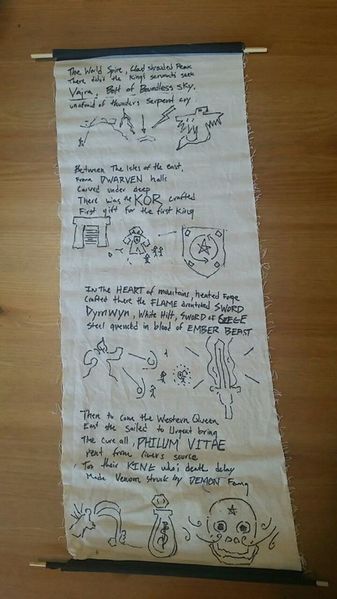 The World Spire, Cloud shrouded Peak
There did the Kings servants seek
Vajra, Bolt of Boundless sky,
unafraid of thunders Serpent cry
Between The Isles of the east,
From DWARVEN halls
Carved under deep
There was the KOR crafted
First gift for the first King
In the HEART of mountains, heated Forge
Crafted there the FLAME drenched SWORD
Dyrnwyn, White Hilt, SWORD of
Steel quenched in blood of EMBER BEAST
Then to come the Western Queen
East she Sailed to Urgent bring
The cure all, PHILUM VITAE
from rivers source
For their KING who's death delay
Made Venom struck by DEMON Fang